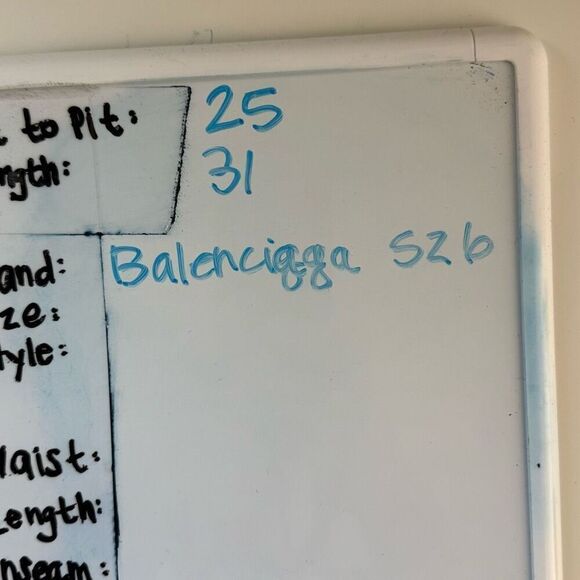 to Pit: 25
ngth: 31
and: Balenciaga sz 6
ze:
tyle:
Waist:
Length:
nseam: